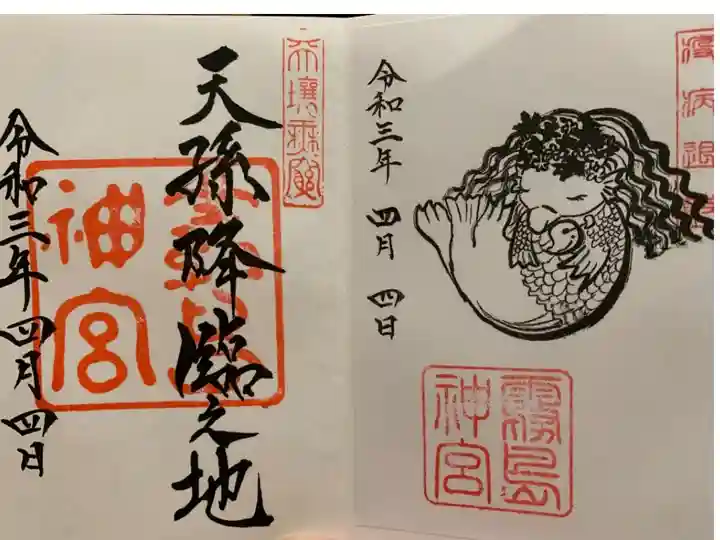 疫病退
令和三年 四月 四日
霧島
神宮
天壤無窮
天孫降臨之地
神宮
令和三年四月四日